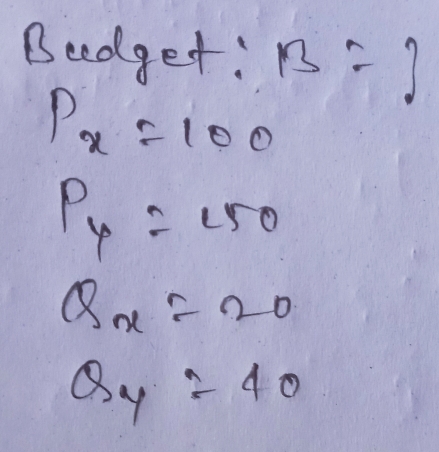 Budget: B = ?
Px = 100
Py = 150
Qx = 20
Qy = 40